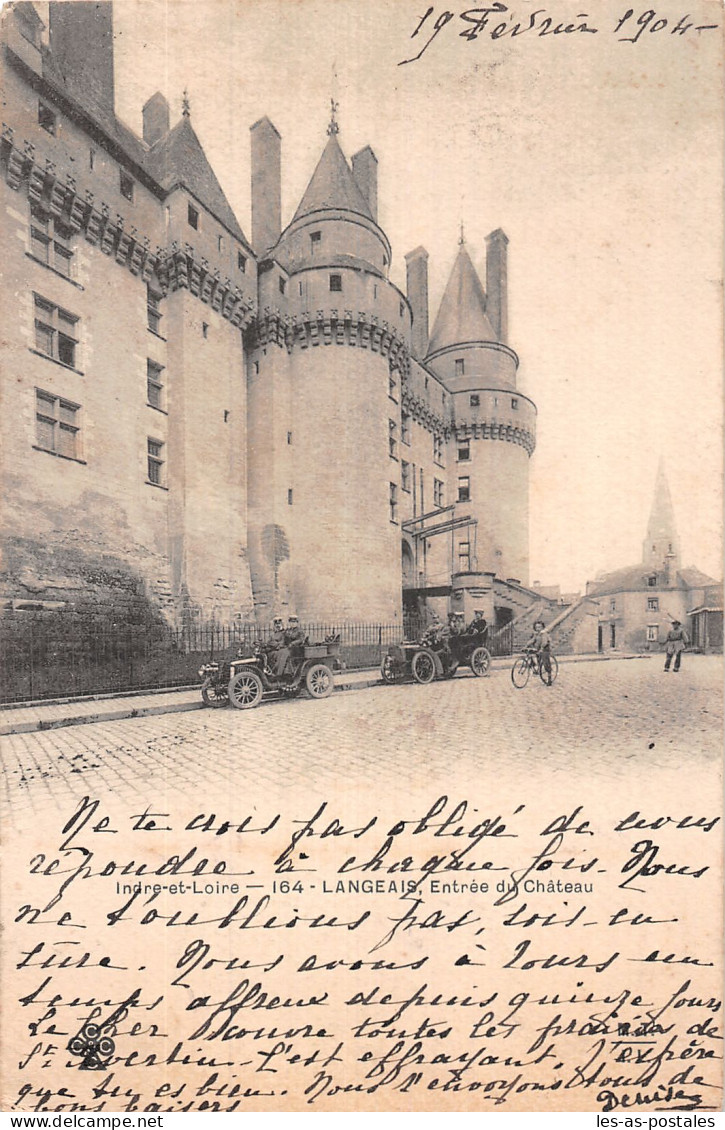 19 Février 1904-
Ne te crois pas obligé de nous
répondre à chaque fois. Nous
Indre-et-Loire — 164 - LANGEAIS, Entrée du Château
ne t'oublions pas, sois-en
sûre. Nous avons à Tours un
temps affreux depuis quinze jours
Le Cher couvre toutes les prairies de
St. Avertin. C'est effrayant. J'espère
que tu es bien. Nous t'envoyons tous de
bons baisers Denise
les-as-postales